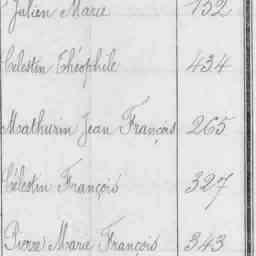 Julien Marie 152
Célestin Théophile 434
Mathurin Jean François 265
Célestin François 327
Pierre Marie François 343